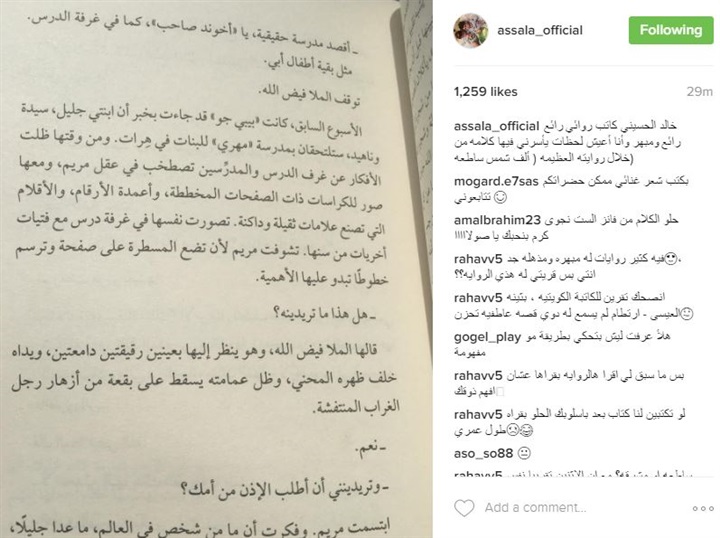 ـ أقصد مدرسة حقيقية، يا «أخوند صاحب»، كما في غرفة الدرس.
مثل بقية أطفال أبي.
توقف الملا فيض الله.
الأسبوع السابق، كانت «بيبي جو» قد جاءت بخبر أن ابنتي جليل، سيدة
وناهيد، ستلتحقان بمدرسة «مهري» للبنات في هِرات. ومن وقتها ظلت
الأفكار عن غرف الدرس والمدرِّسين تصطخب في عقل مريم، ومعها
صور للكراسات ذات الصفحات المخططة، وأعمدة الأرقام، والأقلام
التي تصنع علامات ثقيلة وداكنة. تصورت نفسها في غرفة درس مع فتيات
أخريات من سنها. تشوفت مريم لأن تضع المسطرة على صفحة وترسم
خطوطًا تبدو عليها الأهمية.
ـ هل هذا ما تريدينه؟
قالها الملا فيض الله، وهو ينظر إليها بعينين رقيقتين دامعتين، ويداه
خلف ظهره المحني، وظل عمامته يسقط على بقعة من أزهار رجل
الغراب المنتفشة.
ـ نعم.
ـ وتريدينني أن أطلب الإذن من أمك؟
ابتسمت مريم. وفكرت أن ما من شخص في العالم، ما عدا جليلًا،
assala_official
Following
1,259 likes
29m
assala_official خالد الحسيني كاتب روائي رائع
رائع ومبهر وأنا أعيش لحظات يأسرني فيها كلامه من
خلال روايته العظيمه ( ألف شمس ساطعه)
mogard.e7sas بكتب شعر غنائي ممكن حضراتكم
تتابعوني 😊
amalbrahim23 حلو الكلام من فانز الست نجوى
كرم بنحبك يا صولااااا
rahavv5 فيه كثير روايات له مبهره ومذهله جد،
انتي بس قريتي له هذي الروايه؟؟
rahavv5 انصحك تقرين للكاتبة الكويتيه ، بثينه
العيسى - ارتطام لم يسمع له دوي قصه عاطفيه تحزن
gogel_play هلأ عرفت ليش بتحكي بطريقة مو
مفهومة
rahavv5 بس ما سبق لي اقرا هالروايه بقراها عشان
افهم ذوقك
rahavv5 لو تكتبين لنا كتاب بعد باسلوبك الحلو بقراه
طول عمري
aso_so88 😐
rahavv5
Add a comment...